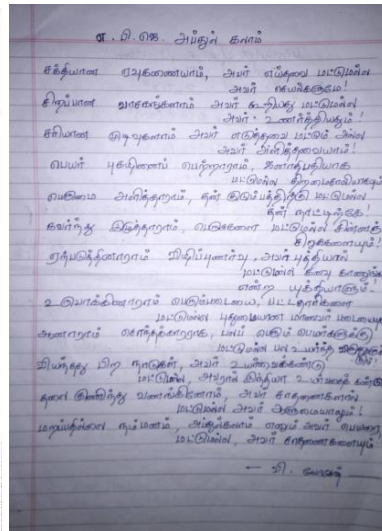 ஏ. பி. ஜெ. அப்துல் கலாம்
சக்தியான ஏவுகணையாம், அவர் எய்தவை மட்டுமல்ல
அவர் செயல்களுமே!
சிறப்பான வாசகங்களாம் அவர் கூறியது மட்டுமல்ல
அவர் உணர்த்தியதும்!
சரியான முடிவுகளாம் அவர் எடுத்தவை மட்டும் அல்ல
அவர் அளித்தவையாம்!
பெயர் புகழினைப் பெற்றாராம், ஜனாதிபதியாக
மட்டுமல்ல திறமைசாலியாகவும்
பெருமை அளித்தாராம், தன் குடும்பத்திற்கு மட்டுமல்ல
தன் நாட்டிற்கே!
கவர்ந்து இழுத்தாராம், பெரியவர்களை மட்டுமல்ல சின்னஞ்
சிறுவர்களையும்!
ஏற்படுத்தினாராம் விழிப்புணர்வு, அவர் புத்தியால்
மட்டுமல்ல கனவு காணுங்கள்
என்ற யுக்தியாலும்!
உருவாக்கினாராம் பெரும்படையை, பட்டதாரிகளை
மட்டுமல்ல புதுமையான மாணவர் படையையும்
ஆனாராம் சொந்தக்காரராக, பெரும்
மட்டுமல்ல பல உயர்ந்த
வியந்தது பிற நாடுகள், அவர் உயர்வைக்கண்டு
மட்டுமல்ல, அவரால் இந்தியா உயர்வதைக் கண்டு
தலை குனிந்து வணங்கினோம், அவர் சாதனைகளால்
மட்டுமல்ல அவர் ஆளுமையாலும்!
மறப்பதில்லை நம் மனம், அப்துல்கலாம் எனும் அவர் பெயரை
மட்டுமல்ல, அவர் சாதனைகளையும்!!
– வி.